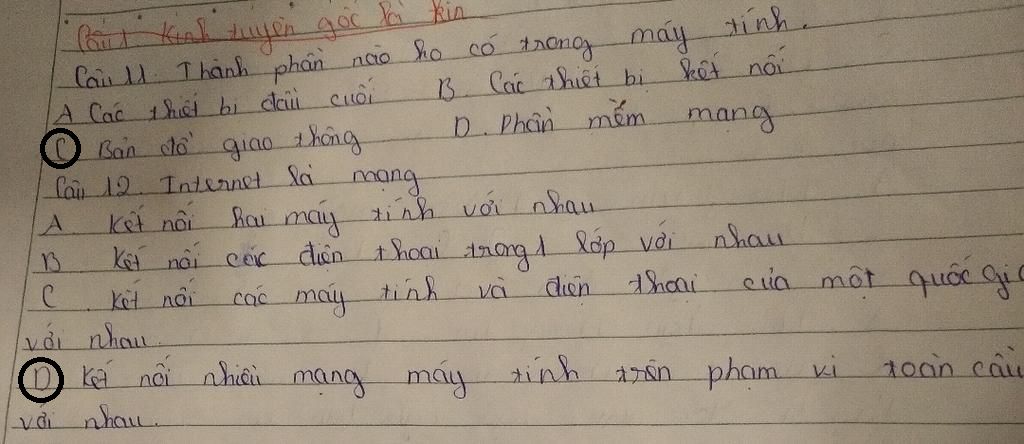 Câu 1 Kinh tuyến gốc là kin
Câu 11. Thành phần nào ko có trong máy tính.
A Các thiết bị đầu cuối B. Các thiết bị kết nối
C Bản đồ giao thông D. Phần mềm mạng
Câu 12. Internet là mạng
A Kết nối hai máy tính với nhau
B Kết nối các điện thoại trong 1 lớp với nhau
C. Kết nối các máy tính và điện thoại của một quốc gia
với nhau.
D Kết nối nhiều mạng máy tính trên phạm vi toàn cầu
với nhau.